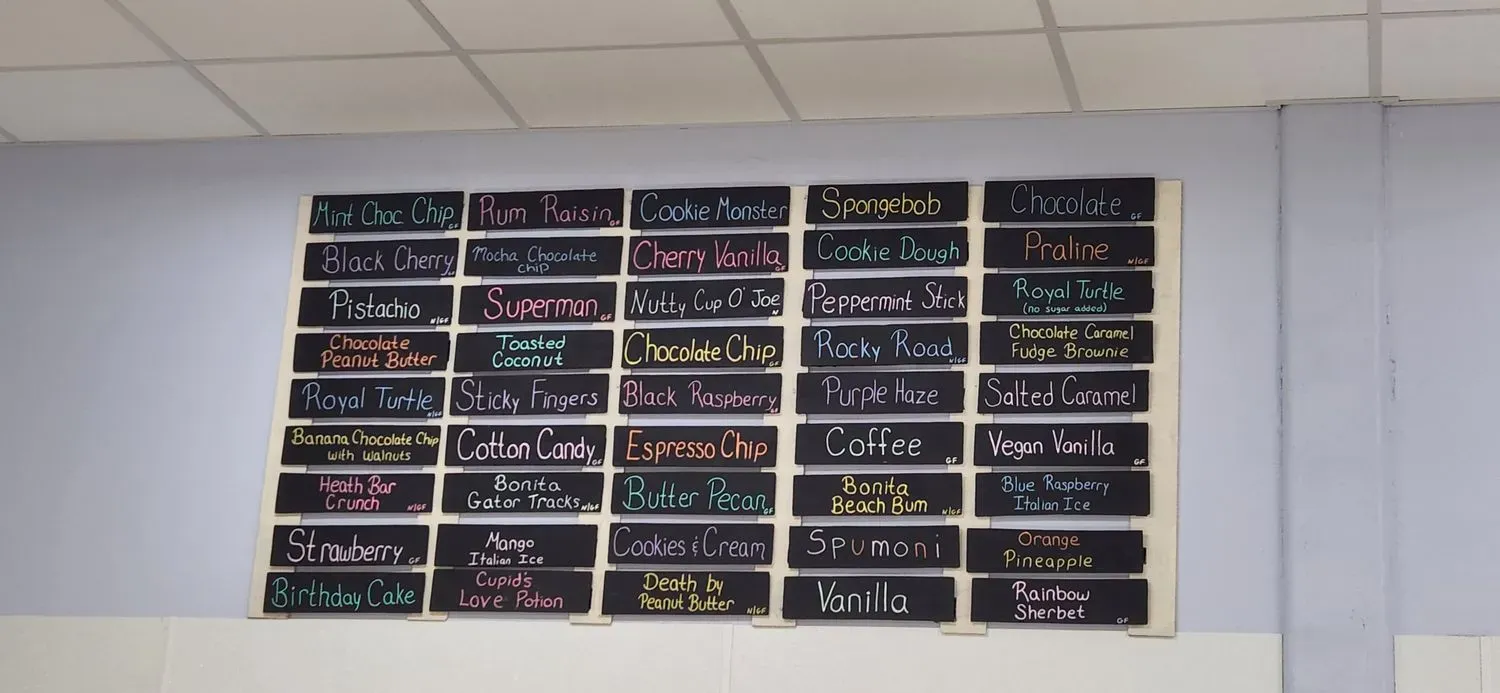 Mint Choc Chip GF
Black Cherry
Pistachio N/GF
Chocolate
Peanut Butter
Royal Turtle N/GF
Banana Chocolate Chip
with Walnuts
Heath Bar
Crunch N/GF
Strawberry GF
Birthday Cake
Rum Raisin GF
Mocha Chocolate
chip
Superman GF
Toasted
Coconut
Sticky Fingers
Cotton Candy GF
Bonita
Gator Tracks N/GF
Mango
Italian Ice
Cupid's
Love Potion
Cookie Monster
Cherry Vanilla GF
Nutty Cup O' Joe N
Chocolate Chip GF
Black Raspberry GF
Espresso Chip
Butter Pecan GF
Cookies & Cream
Death by
Peanut Butter N/GF
Spongebob
Cookie Dough
Peppermint Stick
Rocky Road N/GF
Purple Haze
Coffee GF
Bonita
Beach Bum N/GF
Spumoni
Vanilla
Chocolate GF
Praline N/GF
Royal Turtle
(no sugar added)
Chocolate Caramel
Fudge Brownie
Salted Caramel
Vegan Vanilla GF
Blue Raspberry
Italian Ice
Orange
Pineapple
Rainbow
Sherbet GF